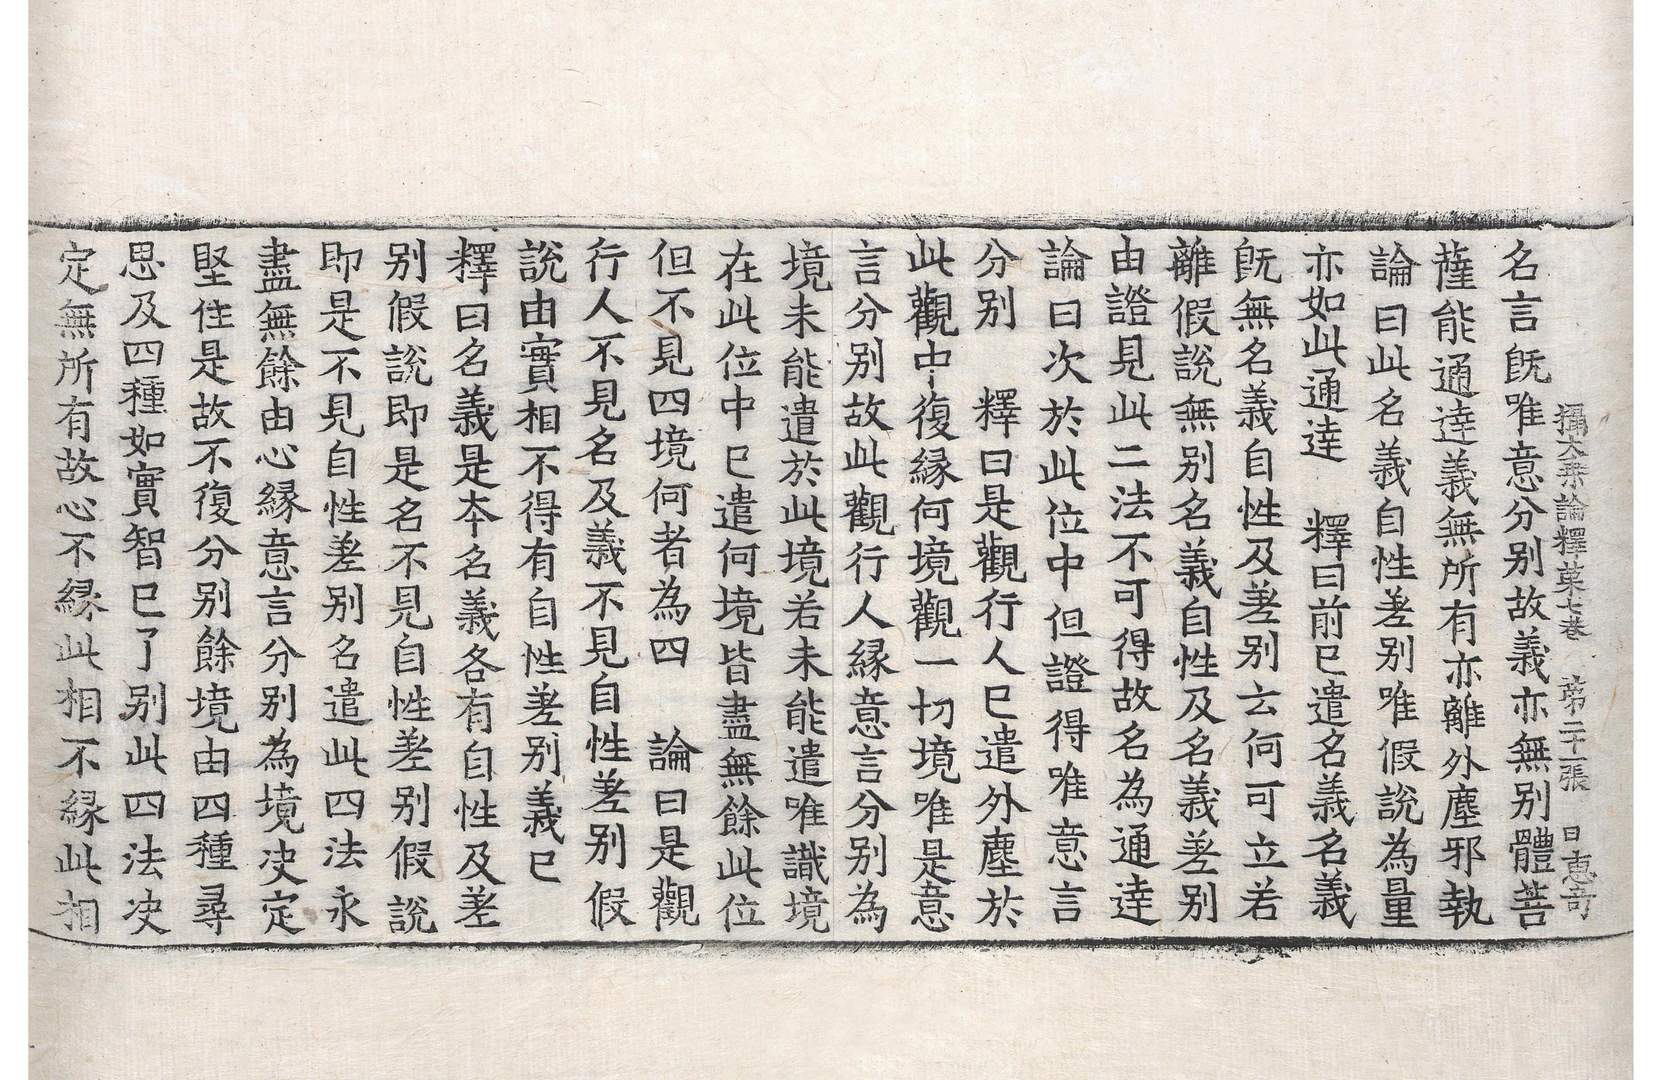 攝大乘論釋第七卷　第二十一張　日　惠奇
名言旣唯意分別故義亦無別體菩
薩能通達義無所有亦離外塵邪執
論曰此名義自性差別唯假說為量
亦如此通達　釋曰前已遣名義名義
旣無名義自性及差別云何可立若
離假說無別名義自性及名義差別
由證見此二法不可得故名為通達
論曰次於此位中但證得唯意言
分別　釋曰是觀行人已遣外塵於
此觀中復緣何境觀一切境唯是意
言分別故此觀行人緣意言分別為
境未能遣於此境若未能遣唯識境
在此位中已遣何境皆盡無餘此位
但不見四境何者為四　論曰是觀
行人不見名及義不見自性差別假
說由實相不得有自性差別義已
釋曰名義是本名義各有自性及差
別假說即是名不見自性差別假說
即是不見自性差別名遣此四法永
盡無餘由心緣意言分別為境决定
堅住是故不復分別餘境由四種尋
思及四種如實智已了別此四法决
定無所有故心不緣此相不緣此相